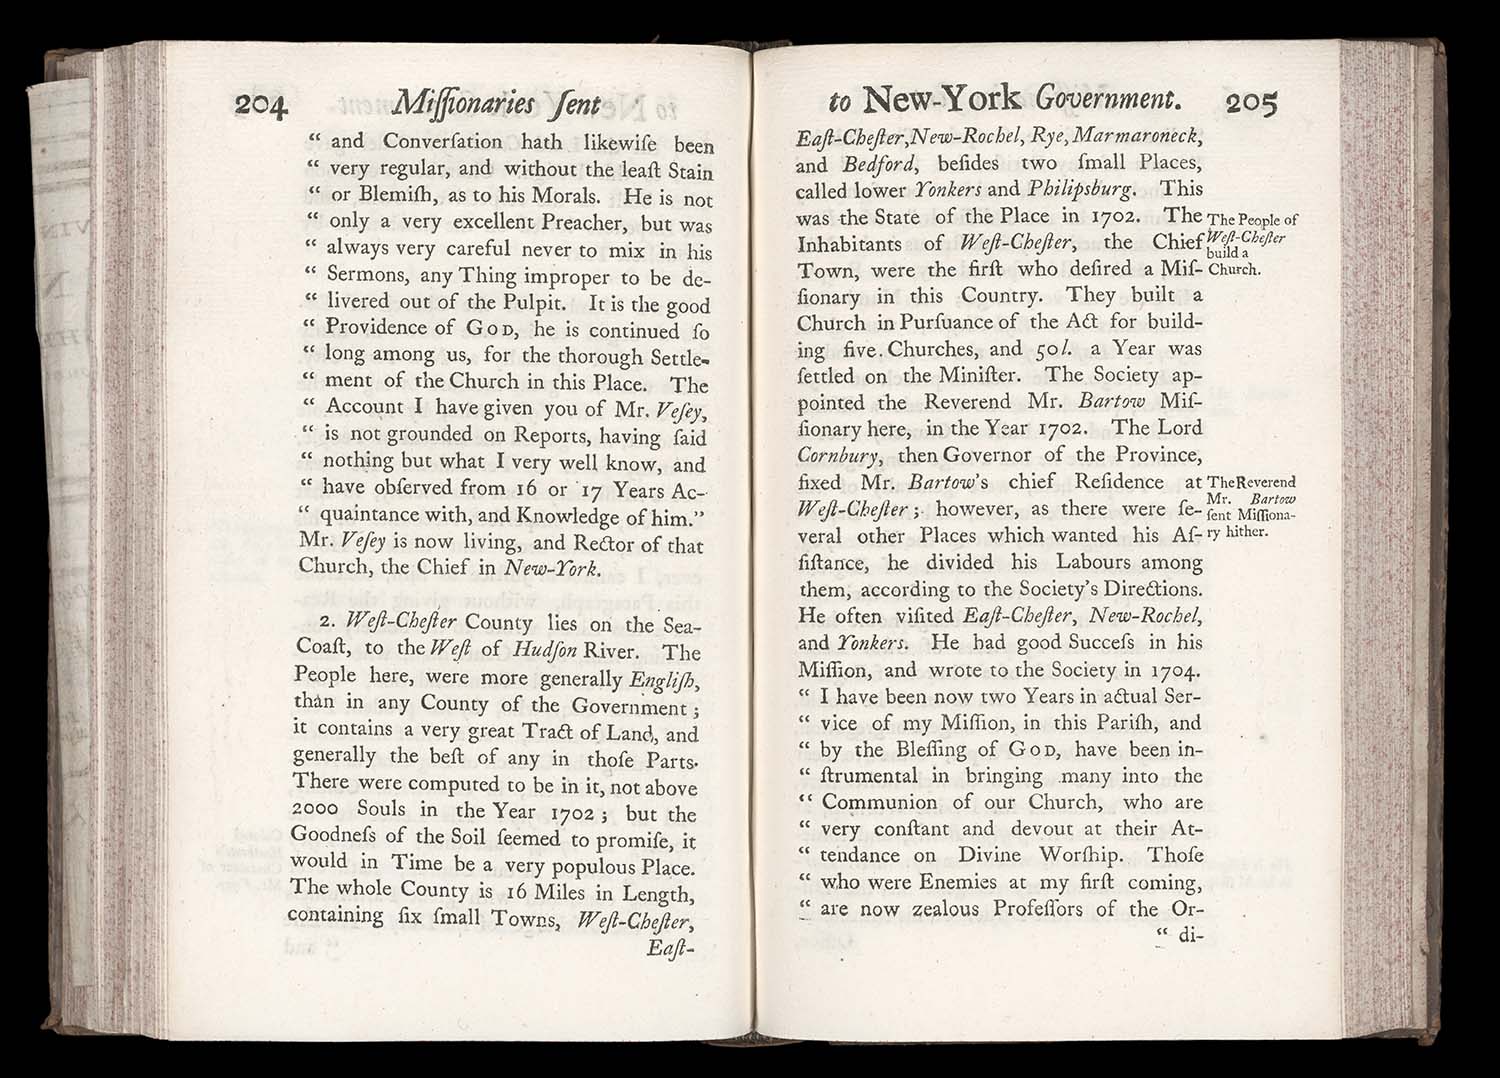 204 Miſſionaries ſent
“ and Converſation hath likewiſe been
“ very regular, and without the leaſt Stain
“ or Blemiſh, as to his Morals. He is not
“ only a very excellent Preacher, but was
“ always very careful never to mix in his
“ Sermons, any Thing improper to be de-
“ livered out of the Pulpit. It is the good
“ Providence of GOD, he is continued ſo
“ long among us, for the thorough Settle-
“ ment of the Church in this Place. The
“ Account I have given you of Mr. Veſey,
“ is not grounded on Reports, having ſaid
“ nothing but what I very well know, and
“ have obſerved from 16 or 17 Years Ac-
“ quaintance with, and Knowledge of him.”
Mr. Veſey is now living, and Rector of that
Church, the Chief in New-York.
2. Weſt-Cheſter County lies on the Sea-
Coaſt, to the Weſt of Hudſon River. The
People here, were more generally Engliſh,
than in any County of the Government;
it contains a very great Tract of Land, and
generally the beſt of any in thoſe Parts.
There were computed to be in it, not above
2000 Souls in the Year 1702; but the
Goodneſs of the Soil ſeemed to promiſe, it
would in Time be a very populous Place.
The whole County is 16 Miles in Length,
containing ſix ſmall Towns, Weſt-Cheſter,
Eaſt-
to New-York Government. 205
Eaſt-Cheſter, New-Rochel, Rye, Marmaroneck,
and Bedford, beſides two ſmall Places,
called lower Yonkers and Philipsburg. This
was the State of the Place in 1702. The
Inhabitants of Weſt-Cheſter, the Chief
Town, were the firſt who deſired a Miſ-
ſionary in this Country. They built a
Church in Purſuance of the Act for build-
ing five Churches, and 50l. a Year was
ſettled on the Miniſter. The Society ap-
pointed the Reverend Mr. Bartow Miſ-
ſionary here, in the Year 1702. The Lord
Cornbury, then Governor of the Province,
fixed Mr. Bartow's chief Reſidence at
Weſt-Cheſter; however, as there were ſe-
veral other Places which wanted his Aſ-
ſiſtance, he divided his Labours among
them, according to the Society's Directions.
He often viſited Eaſt-Cheſter, New-Rochel,
and Yonkers. He had good Succeſs in his
Miſſion, and wrote to the Society in 1704.
“ I have been now two Years in actual Ser-
“ vice of my Miſſion, in this Pariſh, and
“ by the Bleſſing of GOD, have been in-
“ ſtrumental in bringing many into the
“ Communion of our Church, who are
“ very conſtant and devout at their At-
“ tendance on Divine Worſhip. Thoſe
“ who were Enemies at my firſt coming,
“ are now zealous Profeſſors of the Or-
“ di-
The People of
Weſt-Cheſter
build a
Church.
The Reverend
Mr. Bartow
ſent Miſſiona-
ry hither.